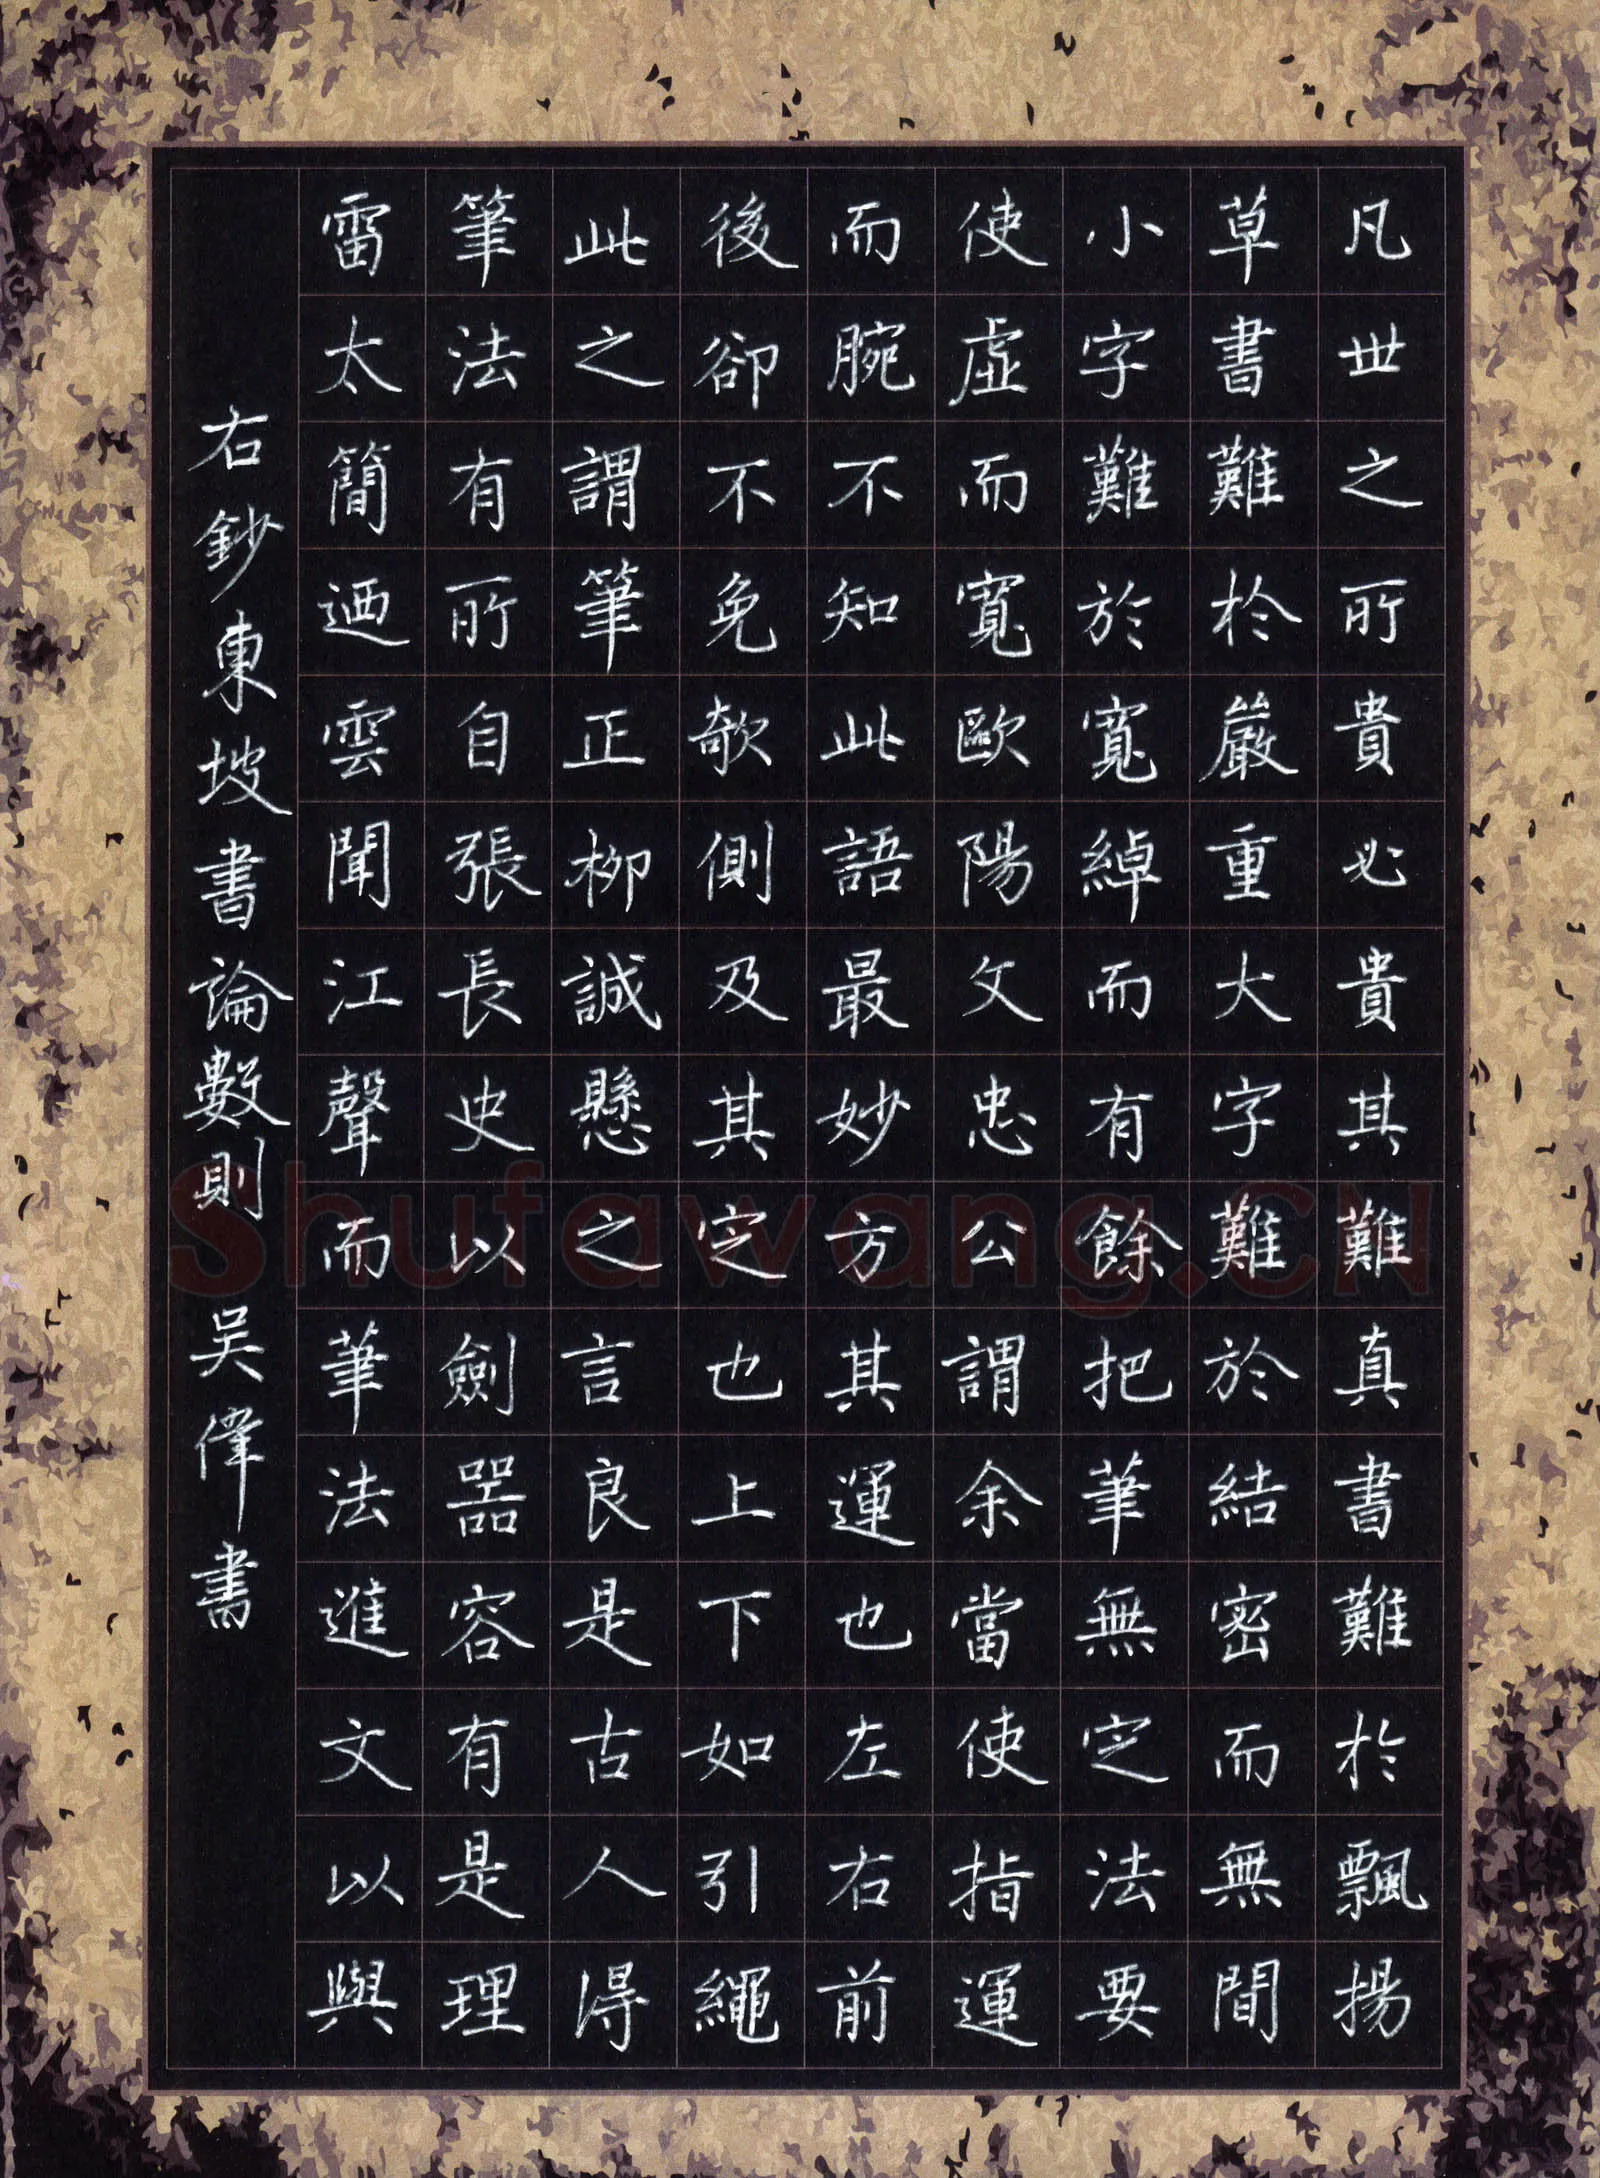 凡世之所貴必貴其難真書難於飄揚
草書難於嚴重大字難於結密而無間
小字難於寬綽而有餘把筆無定法要
使虛而寬歐陽文忠公謂余當使指運
而腕不知此語最妙方其運也左右前
後卻不免欹側及其定也上下如引繩
此之謂筆正柳誠懸之言良是古人得
筆法有所自張長史以劍器容有是理
雷太簡迺雲聞江聲而筆法進文以與
右鈔東坡書論數則 吳偉書
Shufawang.CN